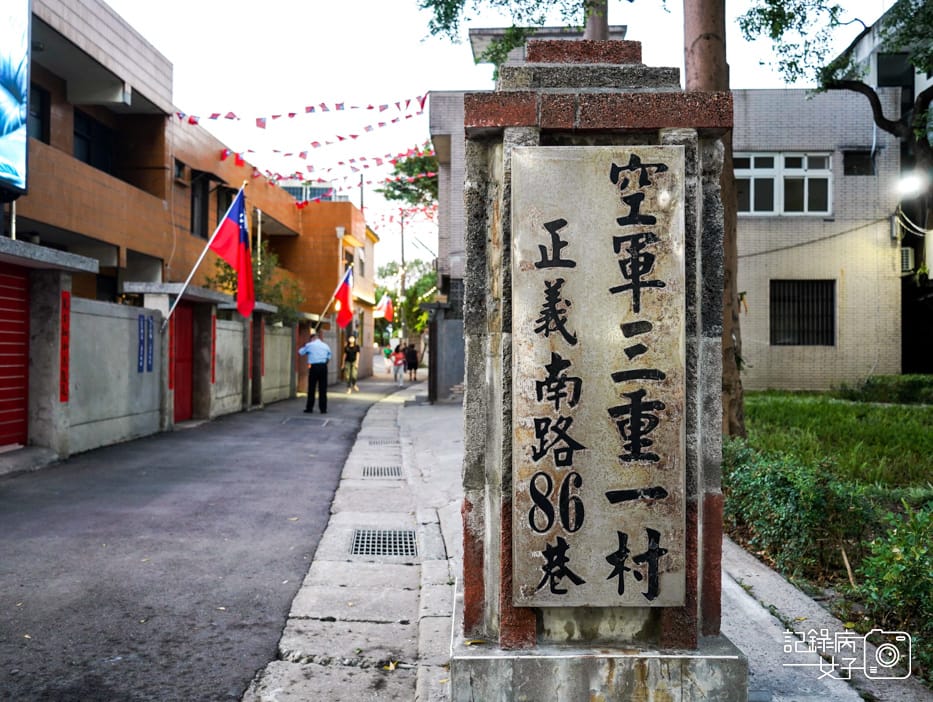 空軍三重一村
正義南路86巷
記錄病
女子